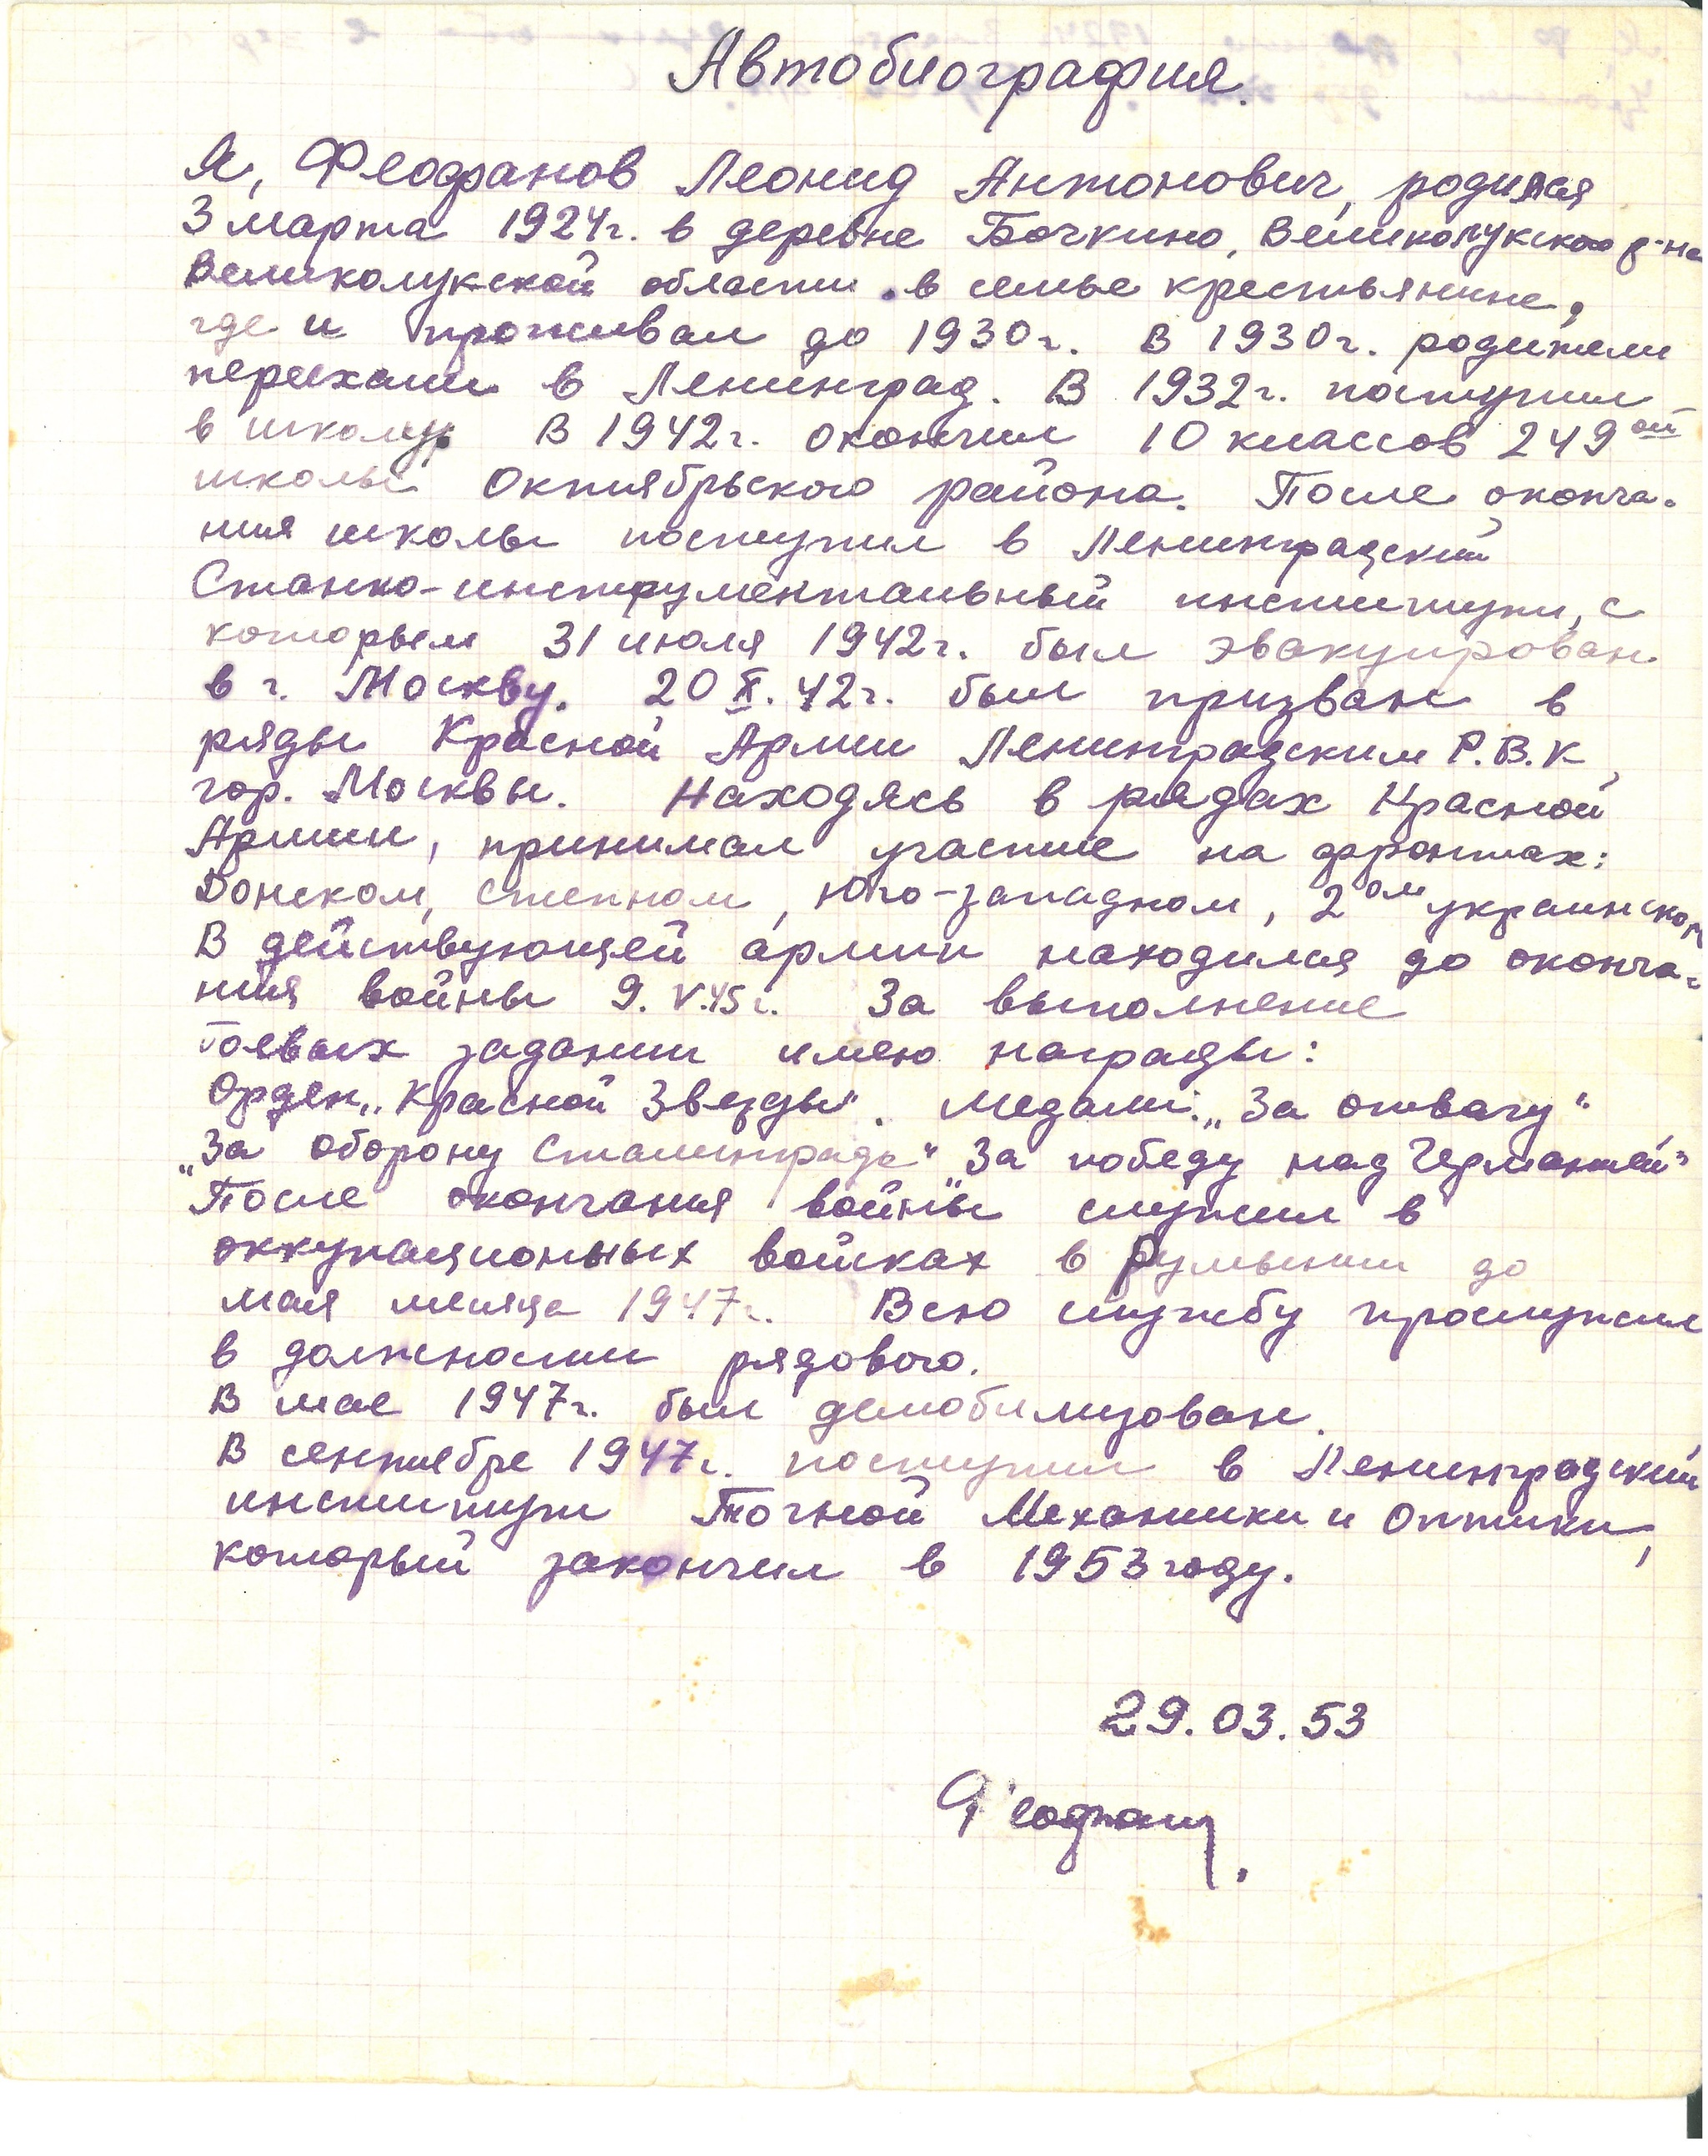 Автобиография.
Я, Феофанов Леонид Антонович, родился
3 марта 1924г. в деревне Бочкино, Великолукского р-на
Великолукской области в семье крестьянина,
где и проживал до 1930г. В 1930г. родители
переехали в Ленинград. В 1932г. поступил
в школу. В 1942г. окончил 10 классов 249ой
школы Октябрьского района. После оконча-
ния школы поступил в Ленинградский
Станко-инструментальный институт, с
которым 31 июля 1942г. был эвакуирован
в г. Москву. 20 X. 42г. был призван в
ряды Красной Армии Ленинградским Р.В.К,
гор. Москвы. Находясь в рядах Красной
Армии, принимал участие на фронтах:
Донском, Степном, Юго-западном, 2ом украинском
В действующей армии находился до оконча-
ния войны 9.V.45г. За выполнение
боевых заданий имею награды:
Орден „Красной Звезды". Медали: „За отвагу"
„За оборону Сталинграда" За победу над Германией"
После окончания войны служил в
оккупационых войсках в Румынии до
мая месяца 1947г. Всю службу прослужил
в должности рядового.
В мае 1947г. был демобилизован.
В сентябре 1947г. поступил в Ленинградский
институт Точной Механики и Оптики,
который закончил в 1953 году.
29.03.53